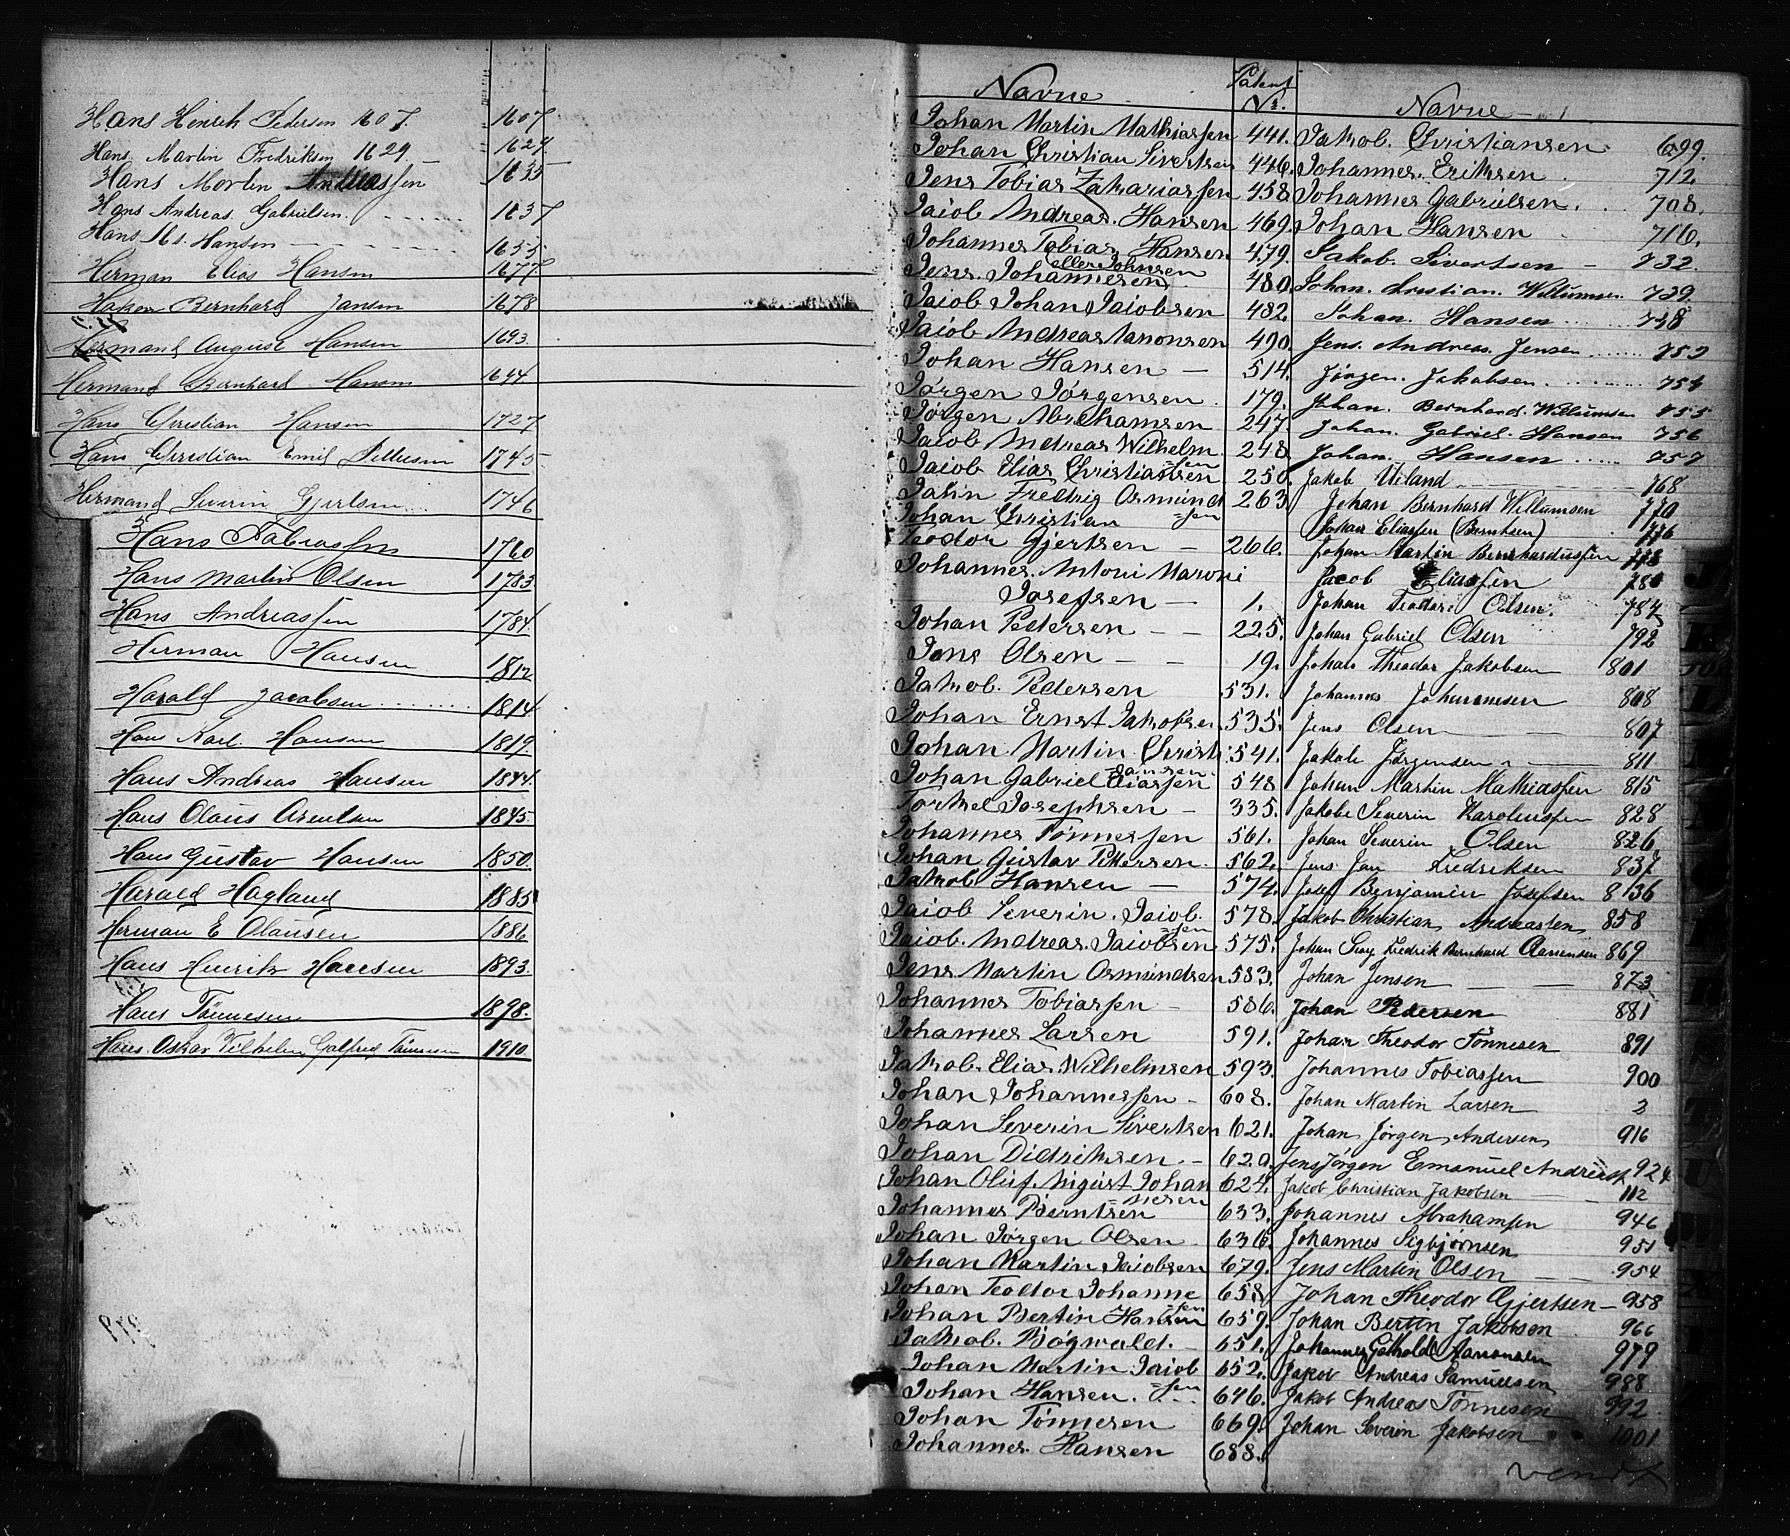 Hans Henrik Pedersen 1607. 1607
Hans Martin Fredriksen 1629 — 1629
Hans Morten Andreassen 1635
Hans Andreas Gabrielsen 1637
Hans Ms. Hansen — 1655
Herman Elias Hansen 1677
Hakon Bernhard Jansen 1678
Hermand August Hansen 1693
Hermand Bernhard Hansen 1694
Hans Christian Hansen 1727
Hans Christian Emil Pettersen 1745
Hermand Severin Gjertsen 1746
Hans Tabiassen 1760
Hans Martin Olsen 1783
Hans Andreassen 1784
Herman Hansen 1812
Harald Jacobsen 1814
Hans Karl Hansen 1819.
Hans Andreas Hansen 1844.
Hans Olaus Arentsen 1845
Hans Gustav Hansen 1850.
Harald Hagland 1885
Herman E Olausen 1886
Hans Henrik Hansen 1893.
Hans Tönnesen 1898.
Hans Oskar Vilhelm Galfred Tönnesen 1910
Navne Patent Nr.
Johan Martin Mathiassen 441.
Johan Christian Sivertsen 446.
Jens Tobias Zakariassen 458
Jaiob Andreas Hansen 469.
Johannes Tobias Hansen 479.
eller Johnsen
Jens Johannesen 480.
Jaiob Johan Jaiobsen 482.
Jaiob Andreas Aanonsen 490.
Johan Hansen — 514.
Jørgen Jørgensen 179.
Jørgen Abrahamsen 247.
Jaiob Andreas Wilhelm 248
=sen
Jaiob Elias Christiansen 250.
Jahn Fredrig Osmund 263
=sen
Johan Christian
Teodor Gjertsen — 266.
Johannes Antoni Maroni
Josefsen — 1.
Johan Pedersen — — 225.
Jans Olsen — — 19.
Jakob Pedersen 531.
Johan Ernst Jakobsen 535.
Johan Martin Christi 541.
=ansen
Johan Gabriel Eliassen 548
Torkel Josephsen — 335.
Johannes Tønnessen 561.
Johan Gustav Pettersen 562.
Jakob Hansen — 574.
Jaiob Severin Jaiob 578.
=sen
Jaiob Andreas Jaiobsen 575.
Jens Martin Osmundsen 583.
Johannes Tobiassen — 586.
Johannes Larsen 591.
Jakob Elias Wilhelmsen 593.
Johan Johannessen — 608.
Johan Severin Sivertsen 621.
Johan Didriksen — 620.
Johan Oluf August Johan 624.
=nesen
Johannes Berntsen 633.
Johan Jørgen Olsen — 636.
Johan Martin Jaiobsen 679.
Johan Teodor Johanne 658
=sen
Johan Bertin Hansen 659.
Jakob Bøgwald. — 651.
Johan Martin Jaiob 652.
=sen
Johan Hansen 646.
Johan Tønnesen 669.
Johannes Hansen 688.
Navne
Jakob Christiansen 699.
Johannes Eriksen 712.
Johannes Gabrielsen 708.
Johan Hansen 716.
Jakob Sivertsen — 732.
Johan Christian Willumsen 739.
Johan Hansen 738
Jens Andreas Jensen 753
Jørgen Jakobsen 754
Johan Bernhard Willumsen 755
Johan Gabriel Hansen 756
Johan Hansen 757
Jakob Uiland 768
Johan Bernhard Willumsen 770
Johan Eliassen (Berntsen) 776
Johan Martin Bernhardussen 778
Jacob Eliassen 780
Johan Teodor Olsen. 784
Johan Gabriel Olsen 792
Johan Theodor Jakobsen 801
Johannes Johannesen 808
Jens Olsen 807
Jakob Jørgensen 811
Johan Martin Mathiassen 815
Jakob Severin Karolussen 828
Johan Severin Olsen 826
Jens Jan Fredriksen 837
Josef Benjamin Josefsen 836
Jakob Christian Andreassen 858
Johan Fredrik Bernhard Aanensen 869
Johan Jensen — — 873
Johan Pedersen 881
Johan Theodor Tönnesen 891
Johannes Tobiassen 900
Johan Martin Larsen 2
Johan Jørgen Andersen 916
Jens Jørgen Emanuel Andreass 924
Jakob Christian Jakobsen 112
Johannes Abrahamsen 946
Johannes Sigbjørnsen 951
Jens Martin Olsen — 954
Johan Theodor Gjertsen — 958
Johan Bertin Jakobsen 966
Johannes Gothold Aanonsen 979
Jakob Andreas Samuelsen 988
Jakob Andreas Tönnesen 992
Johan Severin Jakobsen 1001
vend